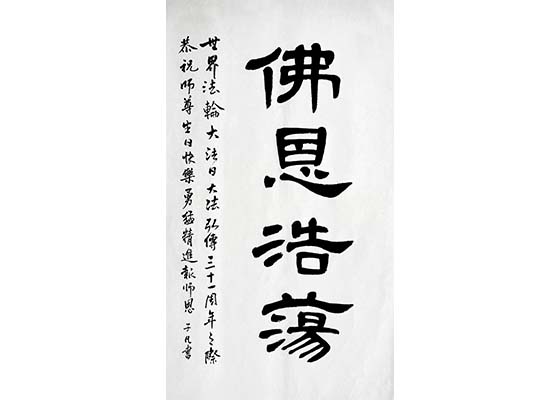 佛恩浩蕩
世界法輪大法日大法弘傳三十一周年之際
恭祝師尊生日快樂勇猛精進報師恩 于凡書